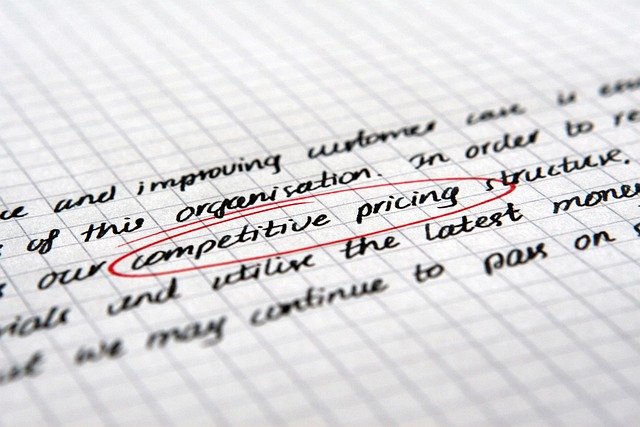 and improving customer care is
of this organisation. In order to re
our competitive pricing structure.
and utilise the latest mone
we may continue to pass on s